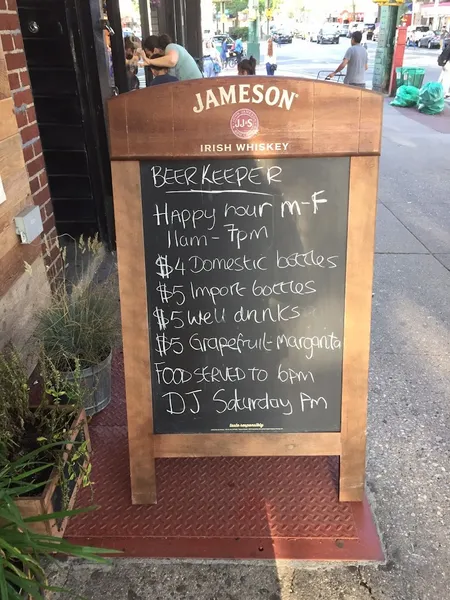 JAMESON
JJ&S
IRISH WHISKEY
BEERKEEPER
Happy hour M-F
11am - 7pm
$4 Domestic bottles
$5 Import bottles
$5 Well drinks
$5 Grapefruit Margarita
FOOD SERVED TO 6pm
DJ Saturday Pm
taste responsibly.